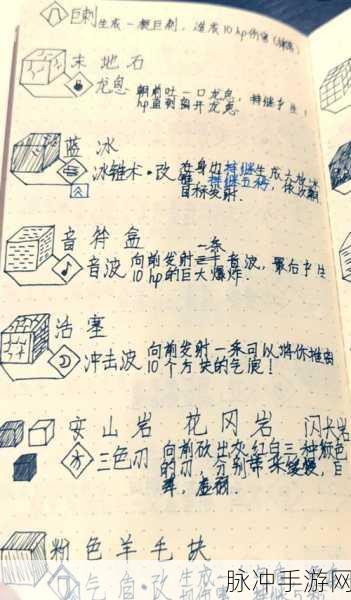 巨刺 生成一根巨刺，造成10hp伤害
末地石
龙息 朝前吐一口龙息，持续
hp直到离开龙息
蓝冰
冰锥术·改 在身边持续生成
持续五秒，依次朝
目标发射.
音符盒
音波 向前发射一条音波，最后产生
10hp的巨大爆炸.
活塞
冲击波 向前发射一条可以将你推出
10个方块的气浪！
安山岩 花冈岩 闪长岩
三色刃 向前砍出灰红白三种颜色
的刃，分别带来缓慢，
虚弱.
粉色羊毛块
气盾·改 生成一
脉冲手游网